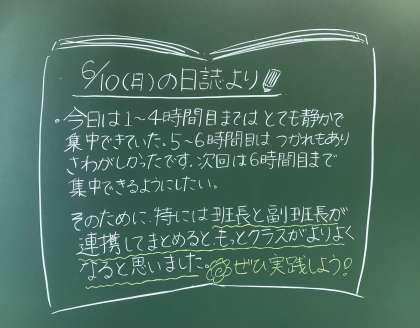 6/10(月)の日誌より
。今日は1〜4時間目まではとても静かで
集中できていた。5〜6時間目はつかれもあり
さわがしかったです。次回は6時間目まで
集中できるようにしたい。
そのために、特には班長と副班長が
連携してまとめると、もっとクラスがよりよく
なると思いました。ぜひ実践しよう?